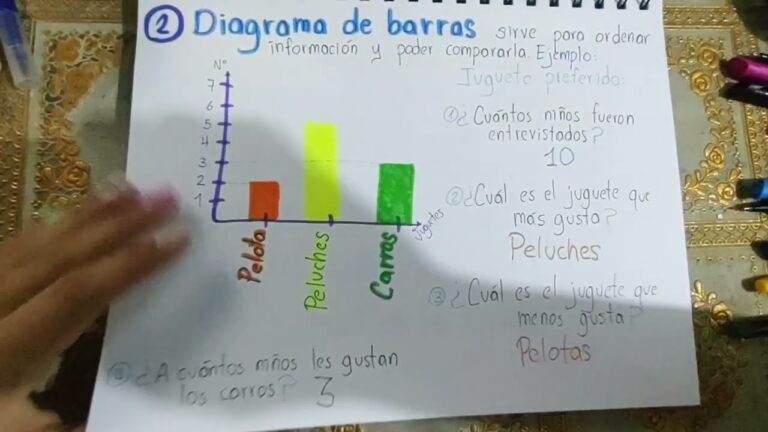 2 Diagrama de barras sirve para ordenar
información y poder compararla. Ejemplo:
Juguete preferido:
N°
7
6
5
4
3
2
1
Pelota
Peluches
Carros
juguetes
① ¿Cuántos niños fueron
entrevistados?
10
② ¿Cuál es el juguete que
más gusta?
Peluches
③ ¿Cuál es el juguete que
menos gusta?
Pelotas
¿A cuántos niños les gustan
los carros? 3